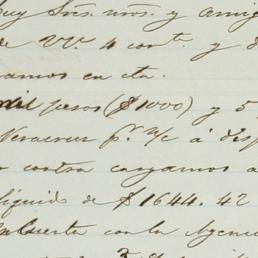 muy Sres. nros. y amig
de Vv. 4 corrte. y d
amos en cta.
mil pesos ($1000) y 5
Veracruz pr. m/c á disp
contra cargamos a
líquido de $1644.42
cubierta con la Agenci